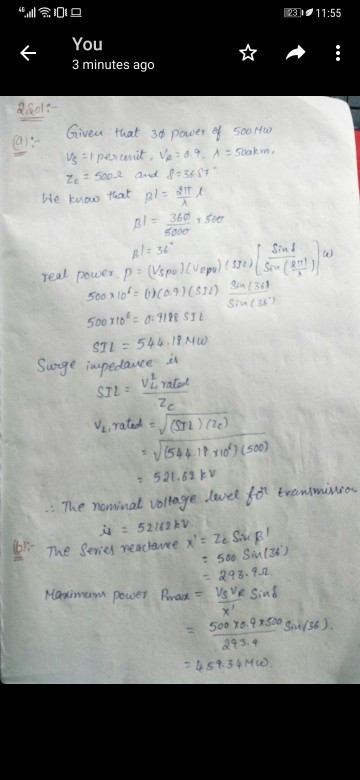 4G 23 11:55
You
3 minutes ago
2 Sol:-
(a):- Given that 3ϕ power of 500 MW
Vs = 1 per unit, VR = 0.9, λ = 5000km,
Zc = 500Ω and δ = 36.87°
We know that βl = 2π/λ l
βl = 360/5000 × 500
βl = 36°
real power, P = (Vspu)(VRpu)(SIL) [Sinδ / Sin(2πl/λ)] W
500×10⁶ = (1)(0.9)(SIL) Sin(36.8) / Sin(36°)
500×10⁶ = 0.9188 SIL
SIL = 544.18 MW
Surge impedance is
SIL = V²L, rated / Zc
VL, rated = √(SIL)(Zc)
= √(544.18 ×10⁶)(500)
= 521.62 kV
∴ The nominal voltage level for transmission
is = 521.62 kV
(b):- The Series reactance x' = Zc Sin βl
= 500 Sin(36°)
= 293.9Ω
Maximum power Pmax = VsVR / x' Sinδ
= 500×0.9×500 / 293.9 Sin(36).
= 459.34 MW.